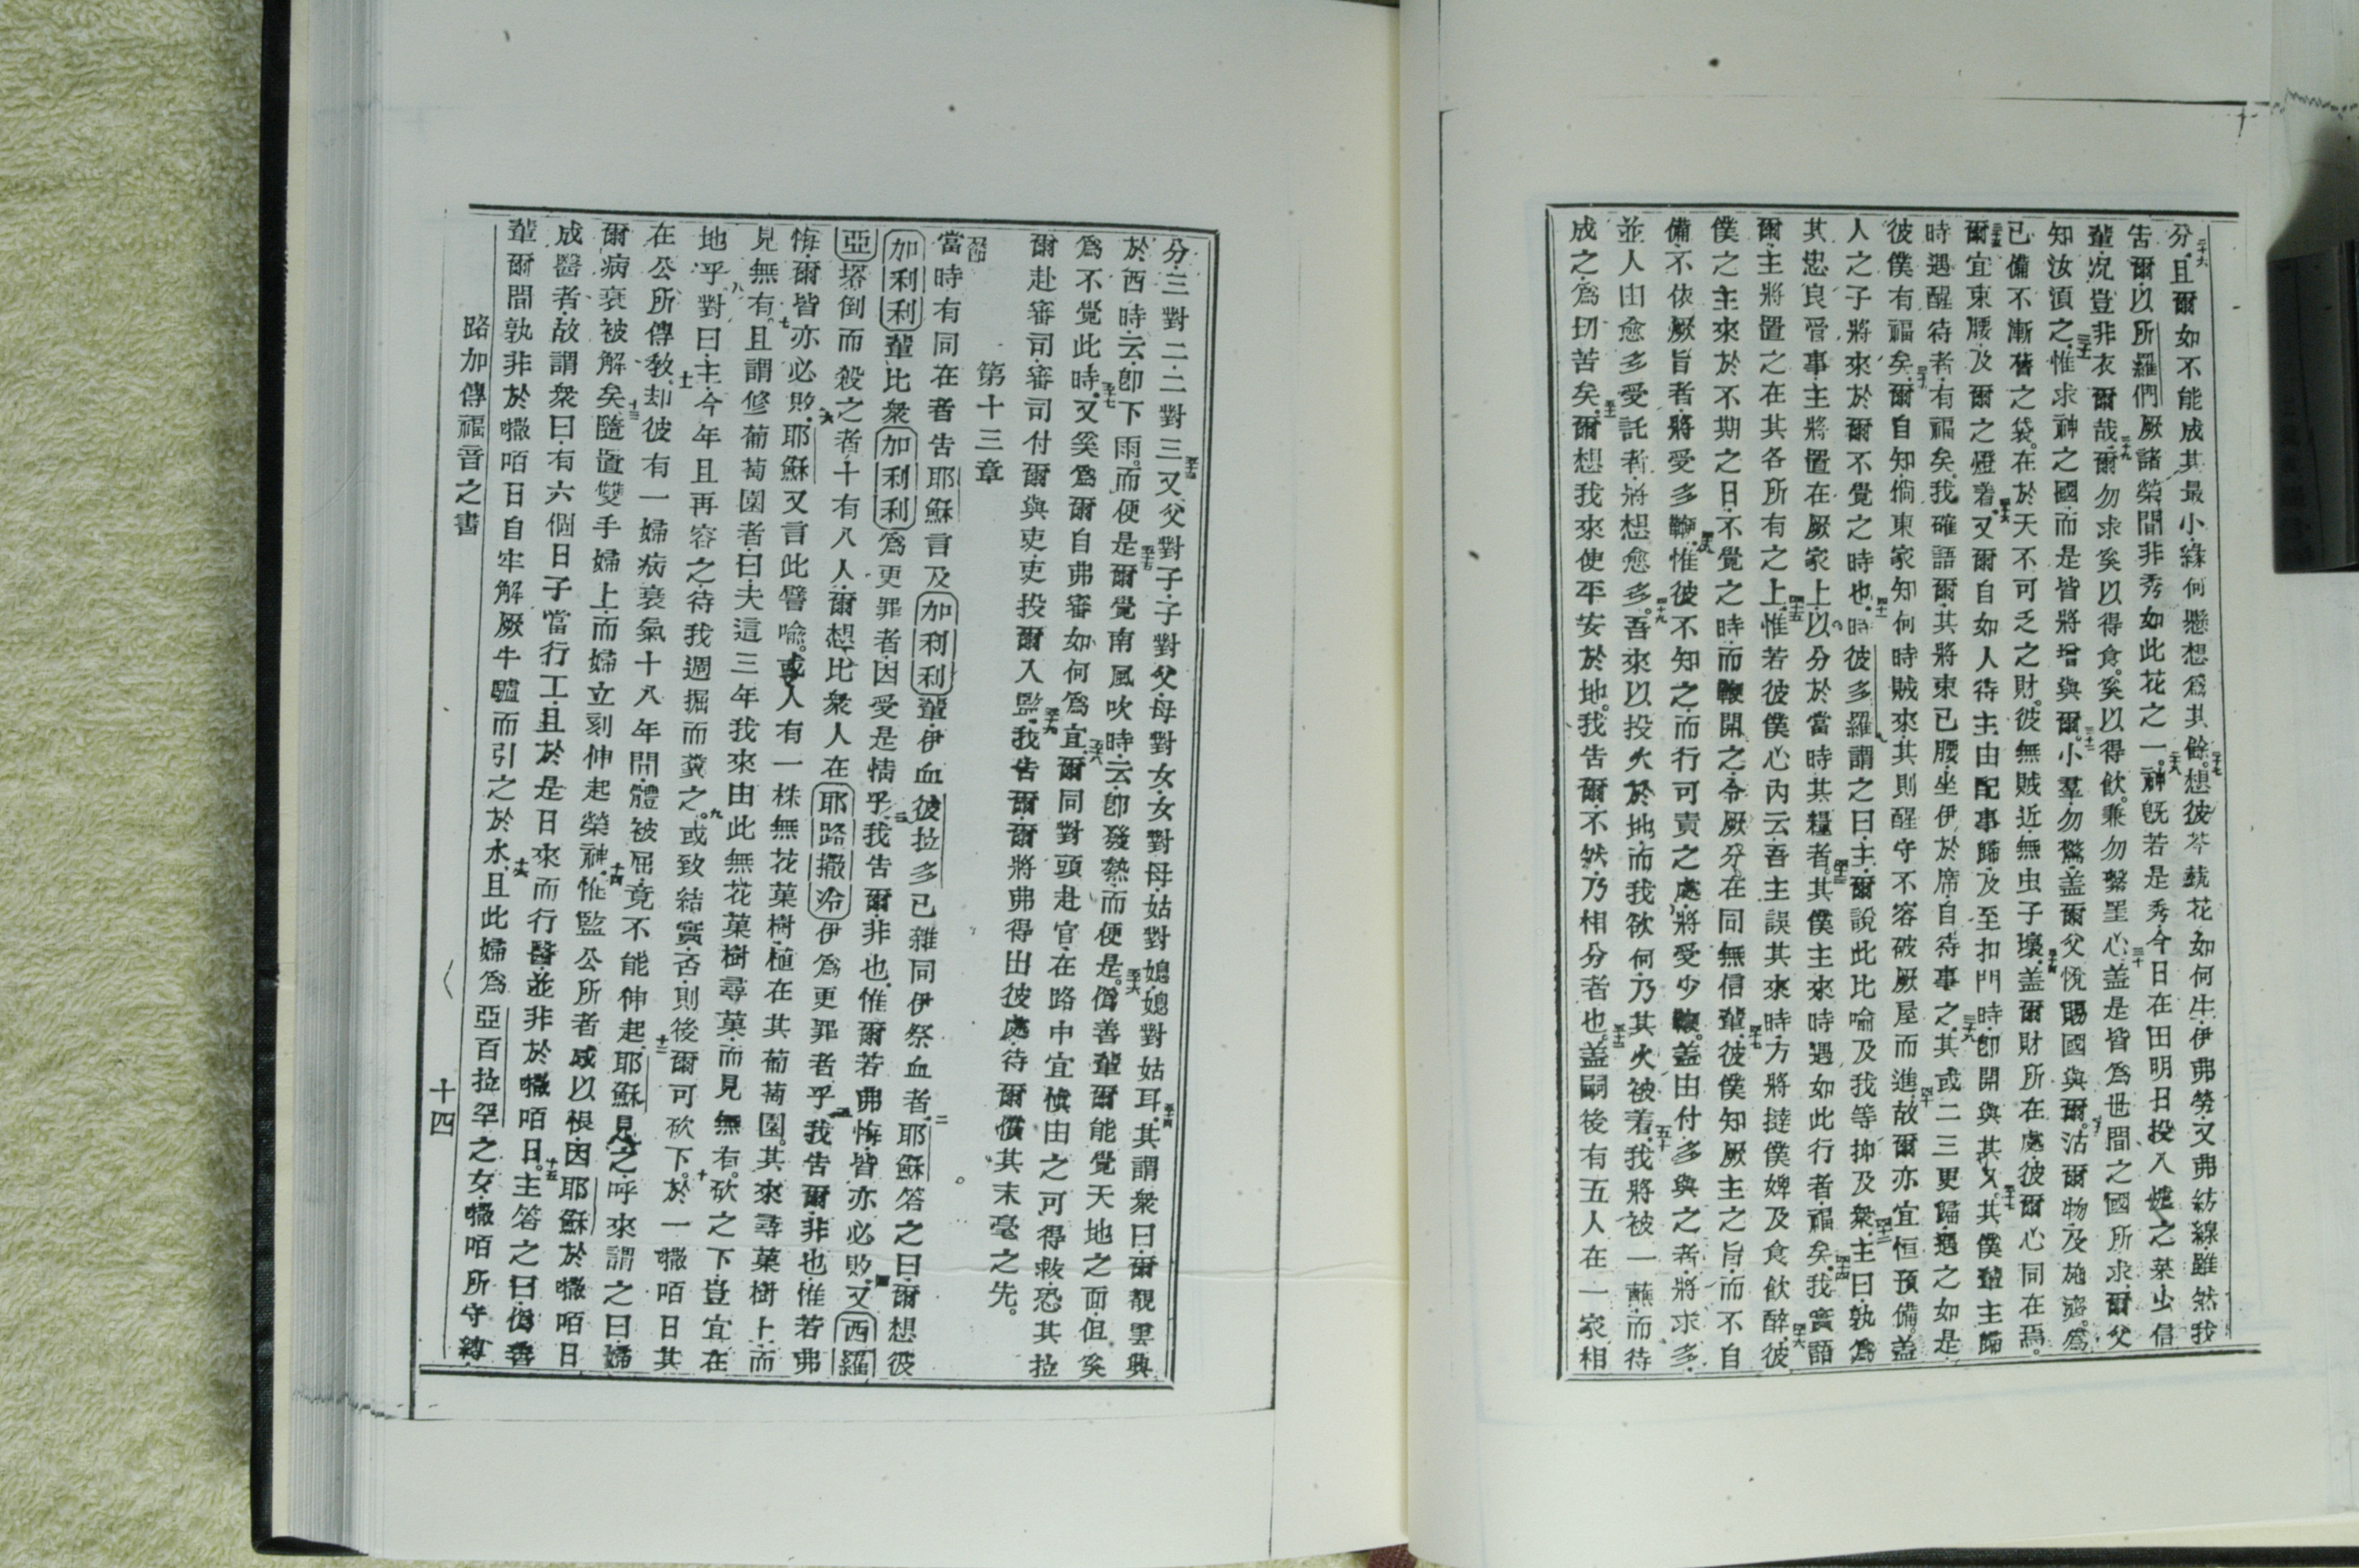 分且爾如不能成其最小緣何懸想為其餘想彼苓藐花如何生伊弗勞又弗紡線雖然我
告爾以所羅們厥諸榮間非秀如此花之一神既若是秀今日在田明日投入爐之菜少信
輩况豈非衣爾哉爾勿求奚以得食奚以得飲兼勿繫罣心蓋是皆為世間之國所求爾父
知汝湏之惟求神之國而是皆將增與爾小羣勿驚蓋爾父悅賜國與爾沽爾物及施濟為
已備不漸舊之袋在於天不可乏之財彼無賊近無虫子壞蓋爾財所在處彼爾心同在焉
爾宜束腰及爾之燈着又爾自如人待主由配事歸及至扣門時卽開與其入其僕輩主歸
時遇醒待者有福矣我確語爾其將束已腰坐伊於席自待事之其或二三更歸遇之如是
彼僕有福矣爾自知倘東家知何時賊來其則醒守不容破厥屋而進故爾亦宜恒預備蓋
人之子將來於爾不覺之時也時彼多羅謂之曰主爾說此比喻及我等抑及衆主曰孰為
其忠良管事主將置在厥家上以分於當時其糧者其僕主來時遇如此行者福矣我實語
爾主將置之在其各所有之上惟若彼僕心內云吾主誤其來時方將撻僕婢及食飲醉彼
僕之主來於不期之日不覺之時而鞭開之令厥分在同無信輩彼僕知厥主之旨而不自
備不依厥旨者將受多鞭惟彼不知之而行可責之處將受少鞭蓋由付多與之者將求多
並人由愈多受託者將想愈多吾來以投火於地而我欲何乃其火被着我將被一蘸而待
成之為切苦矣爾想我來使平安於地我告爾不然乃相分者也蓋嗣後有五人在一家相
分三對二二對三又父對子子對父母對女女對母姑對媳媳對姑耳其謂衆曰爾覩雲興
於西時云卽下雨而便是爾覺南風吹時云卽發熱而便是僞善輩爾能覺天地之面但奚
為不覺此時又奚為爾自弗審如何為宜爾同對頭赴官在路中宜慎由之可得救恐其拉
爾赴審司審司付爾與吏吏投爾入監我告爾爾將弗得出彼處待爾償其末毫之先
第十三章
當時有同在者告耶穌言及加利利輩伊血彼拉多已雜同伊祭血者耶穌答之曰爾想彼
加利利輩比衆加利利為更罪者因受是情乎我告爾非也惟爾若弗悔皆亦必敗又西羅
亞塔倒而殺之者十有八人爾想比衆人在耶路撒冷伊為更罪者乎我告爾非也惟若弗
悔爾皆亦必敗耶穌又言此譬喻或人有一株無花菓樹植在其葡萄園其來尋菓樹上而
見無有且謂修葡萄園者曰夫這三年我來由此無花菓樹尋菓而見無有砍之下豈宜在
地乎對曰主今年且再容之待我週掘而糞之或致結實否則後爾可砍下於一囄咟日其
在公所傳教却彼有一婦病衰氣十八年間體被屈竟不能伸起耶穌見之呼來謂之曰婦
爾病衰被解矣隨置雙手婦上而婦立刻伸起榮神惟監公所者慼以恨因耶穌於囄咟日
成醫者故謂衆曰有六個日子當行工且於是日來而行醫並非於囄咟日主答之曰僞善
輩爾間孰非於囄咟日自牢解厥牛驢而引之於水且此婦為亞百拉罕之女囄咟所守縛
路加傳福音之書
十四